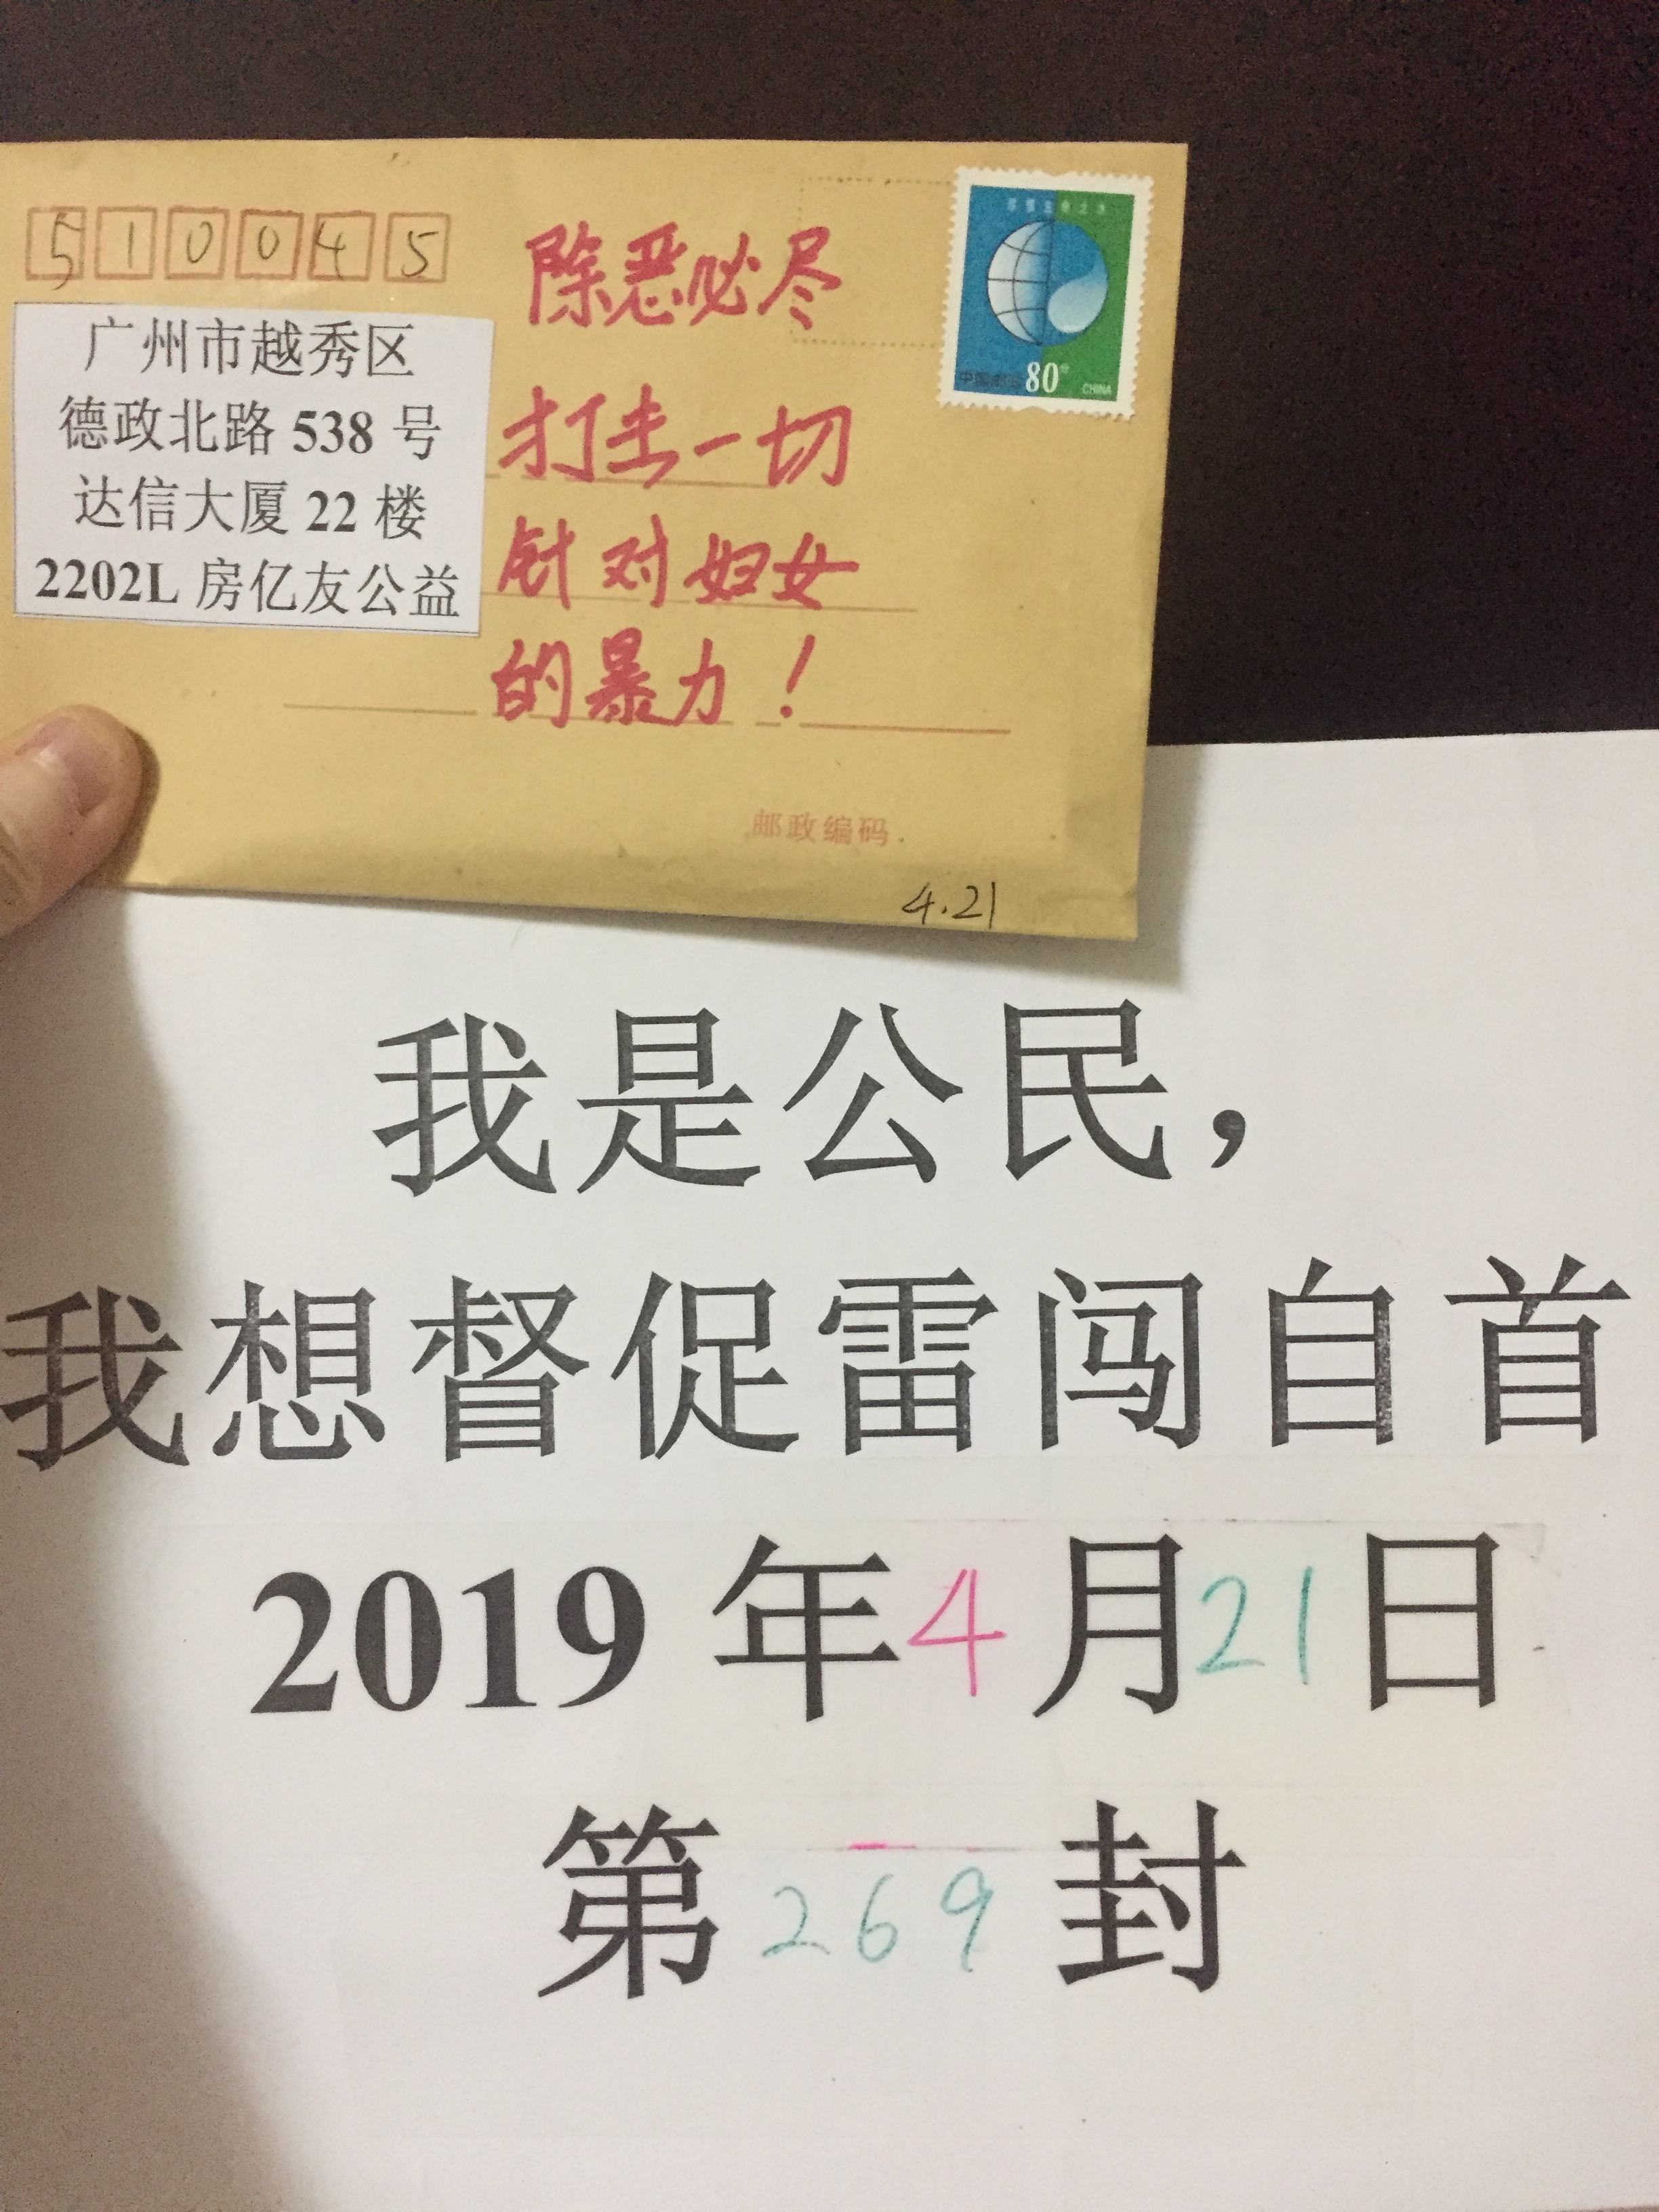 510045
广州市越秀区
德政北路 538 号
达信大厦 22 楼
2202L 房亿友公益
除恶必尽
打击一切
针对妇女
的暴力！
中国邮政 80分 CHINA
邮政编码
4.21
我是公民，
我想督促雷闯自首
2019 年 4 月 21 日
第 269 封